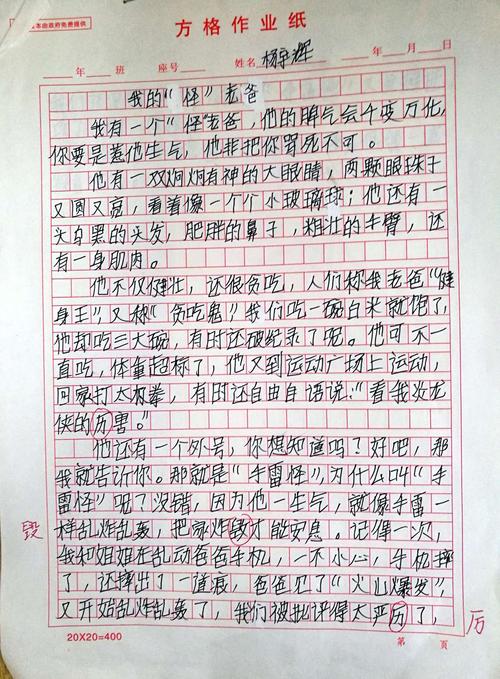 本由政府免费提供
方格作业纸
年 班 座号 姓名 杨宇辉 年 月 日
我的“怪”老爸
我有一个“怪老爸，他的脾气会千变万化，
你要是惹他生气，他非把你骂死不可。
他有一双炯炯有神的大眼睛，两颗眼珠子
又圆又亮，看着像一个个小玻璃球；他还有一
头白黑的头发，肥胖的鼻子，粗壮的手臂，还
有一身肌肉。
他不仅健壮，还很贪吃，人们称我老爸“健
身王”，又称“贪吃鬼”我们吃一碗白米就饱了，
他却吃三大碗，有时还破纪录了呢。他可不一
直吃，体重超标了，他又到运动广场上运动，
回家打太极拳，有时还自由自语说：“看我
龙
侠的厉害。”
他还有一个外号，你想知道吗？好吧，那
我就告诉你。那就是“手雷怪”，为什么叫“手
雷怪”呢？没错，因为他一生气，就像手雷一
样乱炸乱轰，把家炸毁才能安息。记得一次，
毁
我和姐姐在乱动爸爸手机，一不小心，手机摔
了，还摔出了一道痕，爸爸见了“火山爆发”，
又开始乱炸乱轰了，我们被批评得太严厉了，
厉
20X20=400
第 页